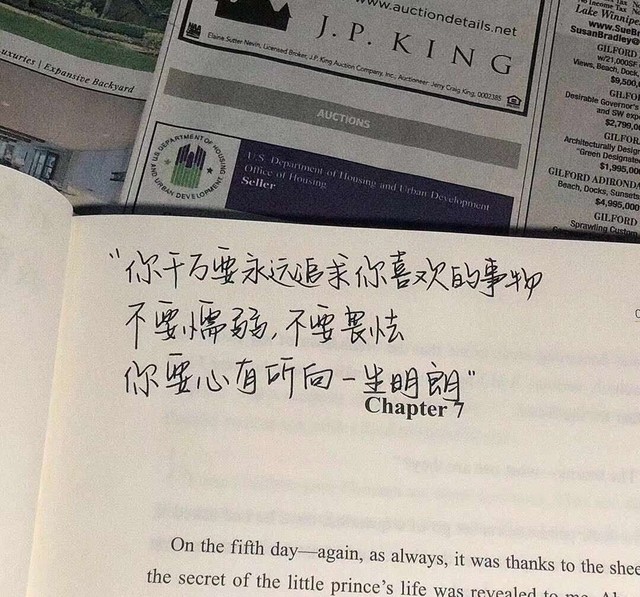 www.auctiondetails.net
J.P. KING
Elaine Sutter Nevin, Licensed Broker, J.P. King Auction Company, Inc., Auctioneer: Jerry Craig King, 0002385
uxuries | Expansive Backyard
AUCTIONS
U.S. DEPARTMENT OF HOUSING
AND URBAN DEVELOPMENT
U.S. Department of Housing and Urban Development
Office of Housing
Seller
Lake Winnip
www.SueBr
SusanBradley
GILFORD
w/21,000SF
Views, Beach, Dock
$9,500,
GILFO
Desirable Governor's
and SW exp
$2,790,0
GILFOR
Architecturally Desig
"Green Designate
$1,995,00
GILFORD ADIROND
Beach, Docks, Sunsets
$4,995,000
GILFORD
Sprawling Custom
“你千万要永远追求你喜欢的事物
不要懦弱,不要畏怯
你要心有所向一生明朗”
Chapter 7
On the fifth day—again, as always, it was thanks to the shee
the secret of the little prince's life was revealed to me.